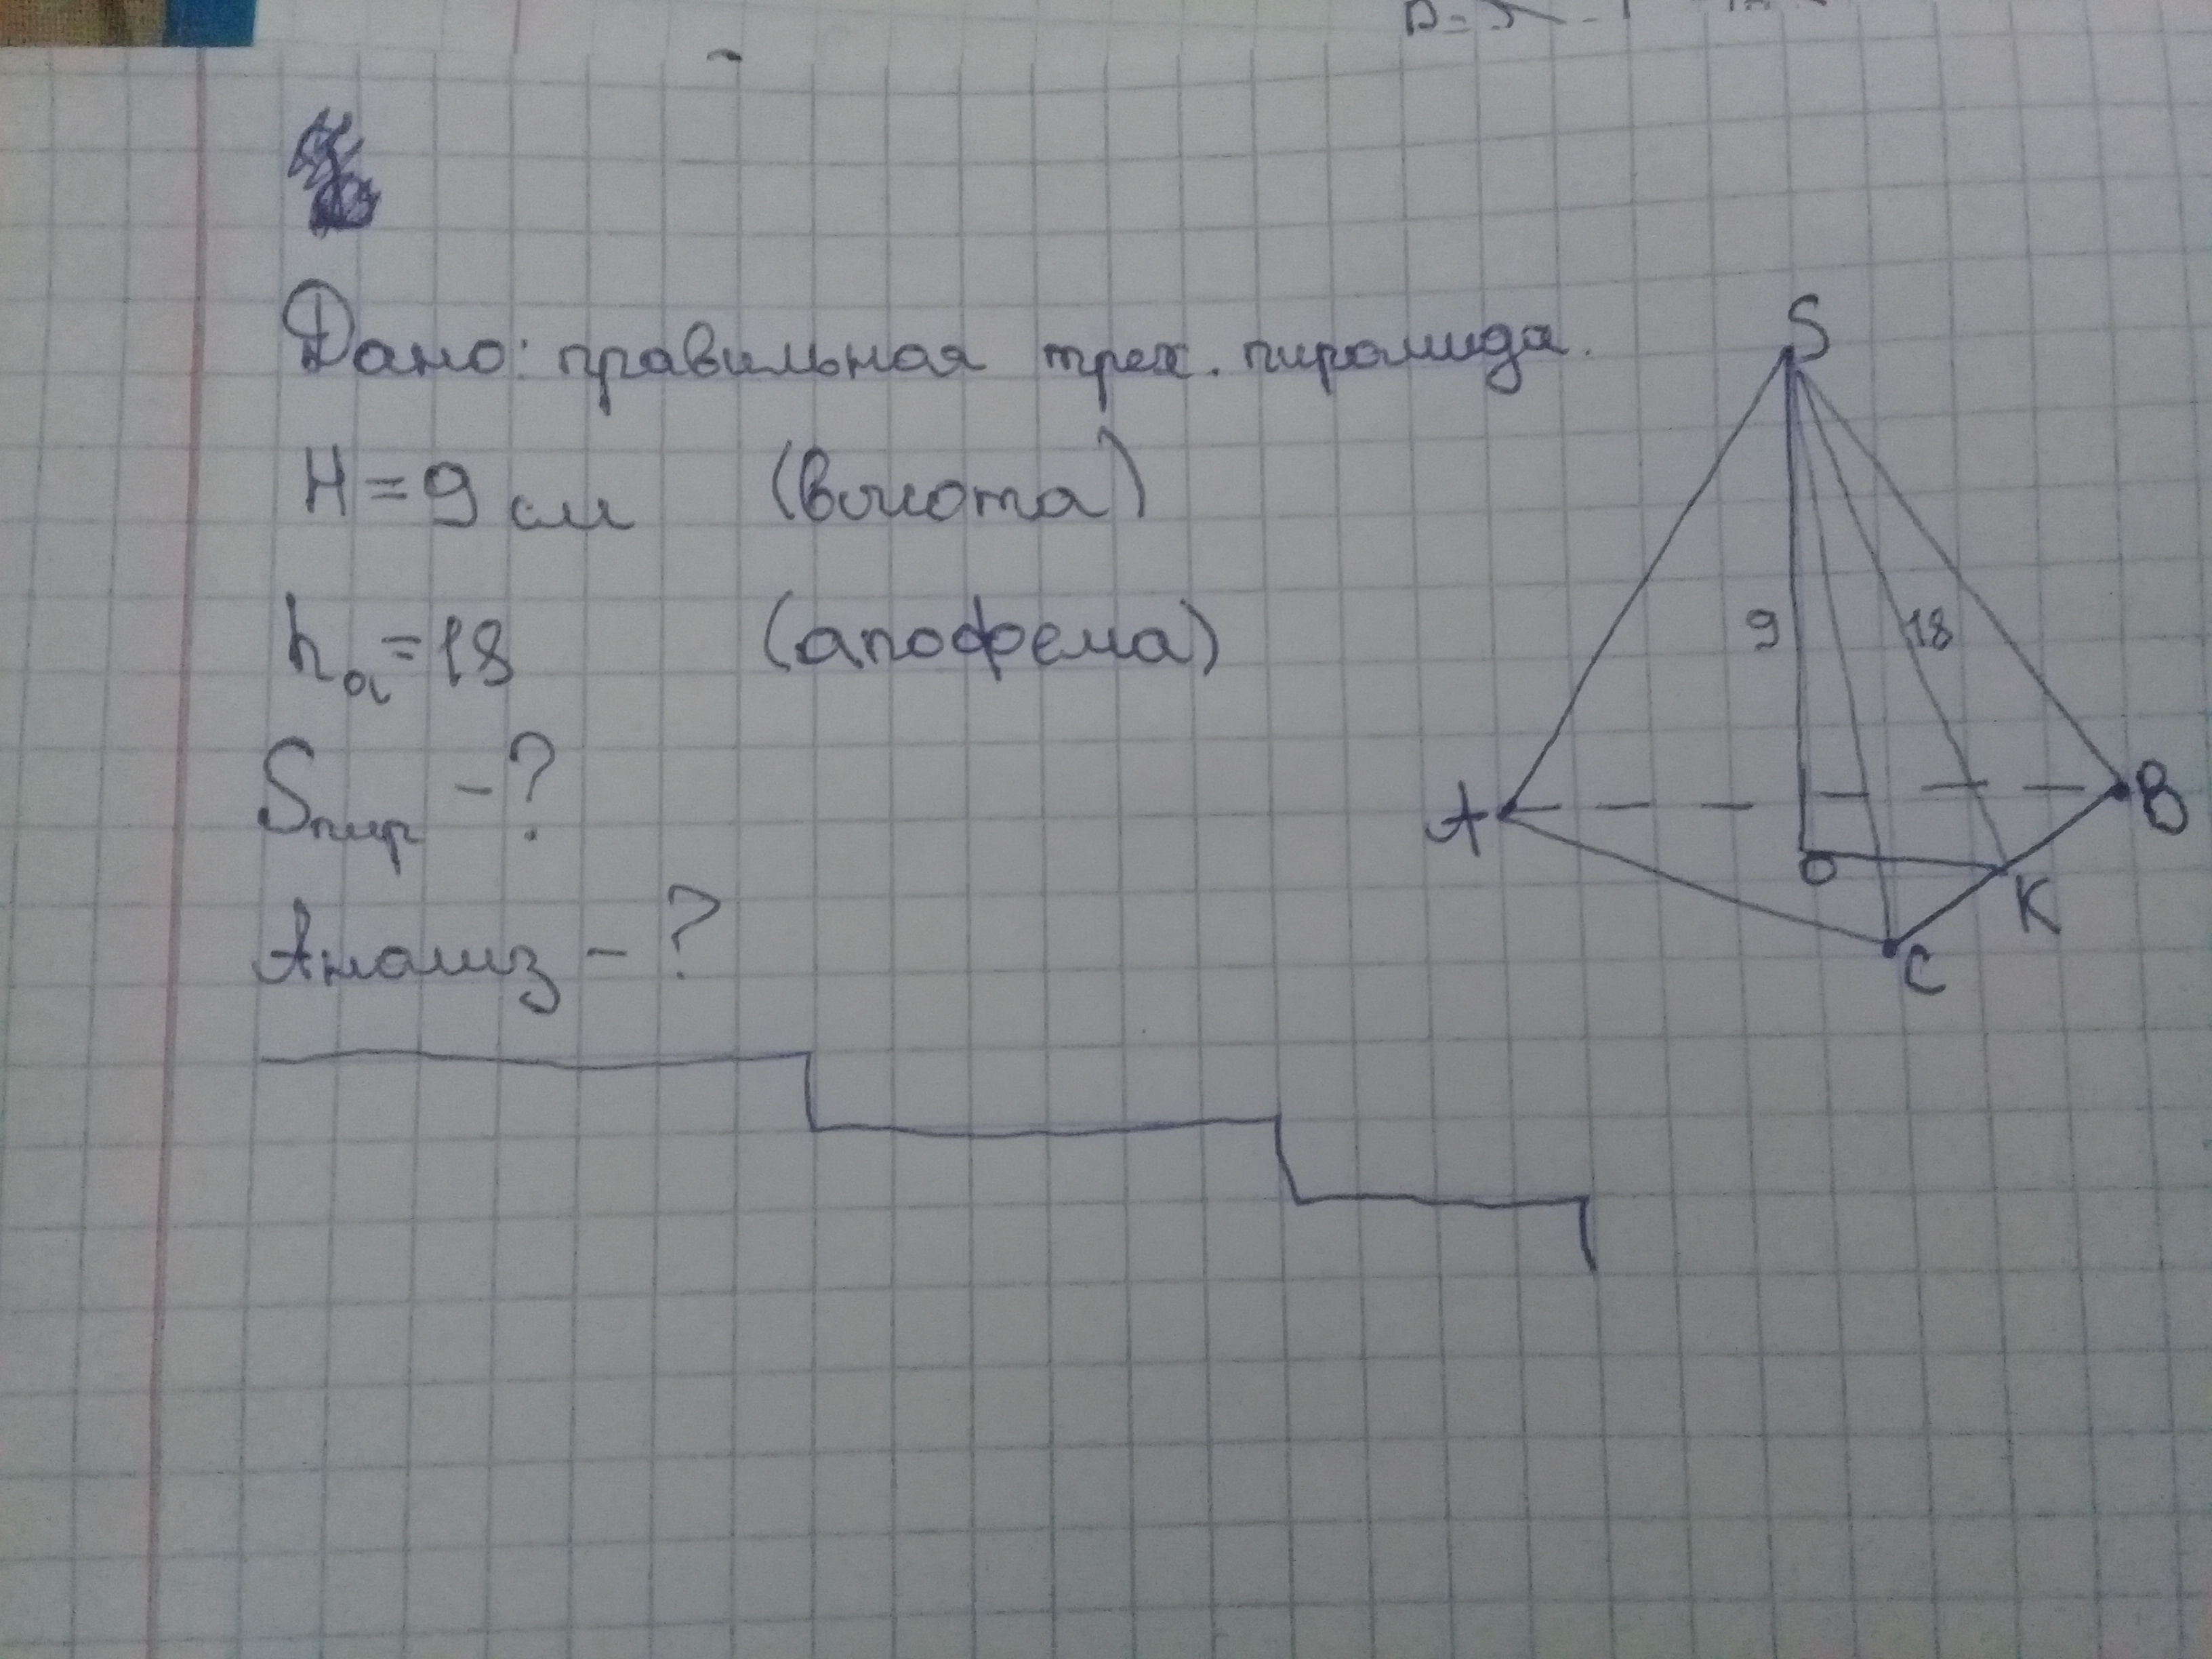 Дано: правильная трех. пирамида.
H = 9 см (высота)
hа = 18 (апофема)
Sпир - ?
Анализ - ?
S
9
18
A
B
O
K
C